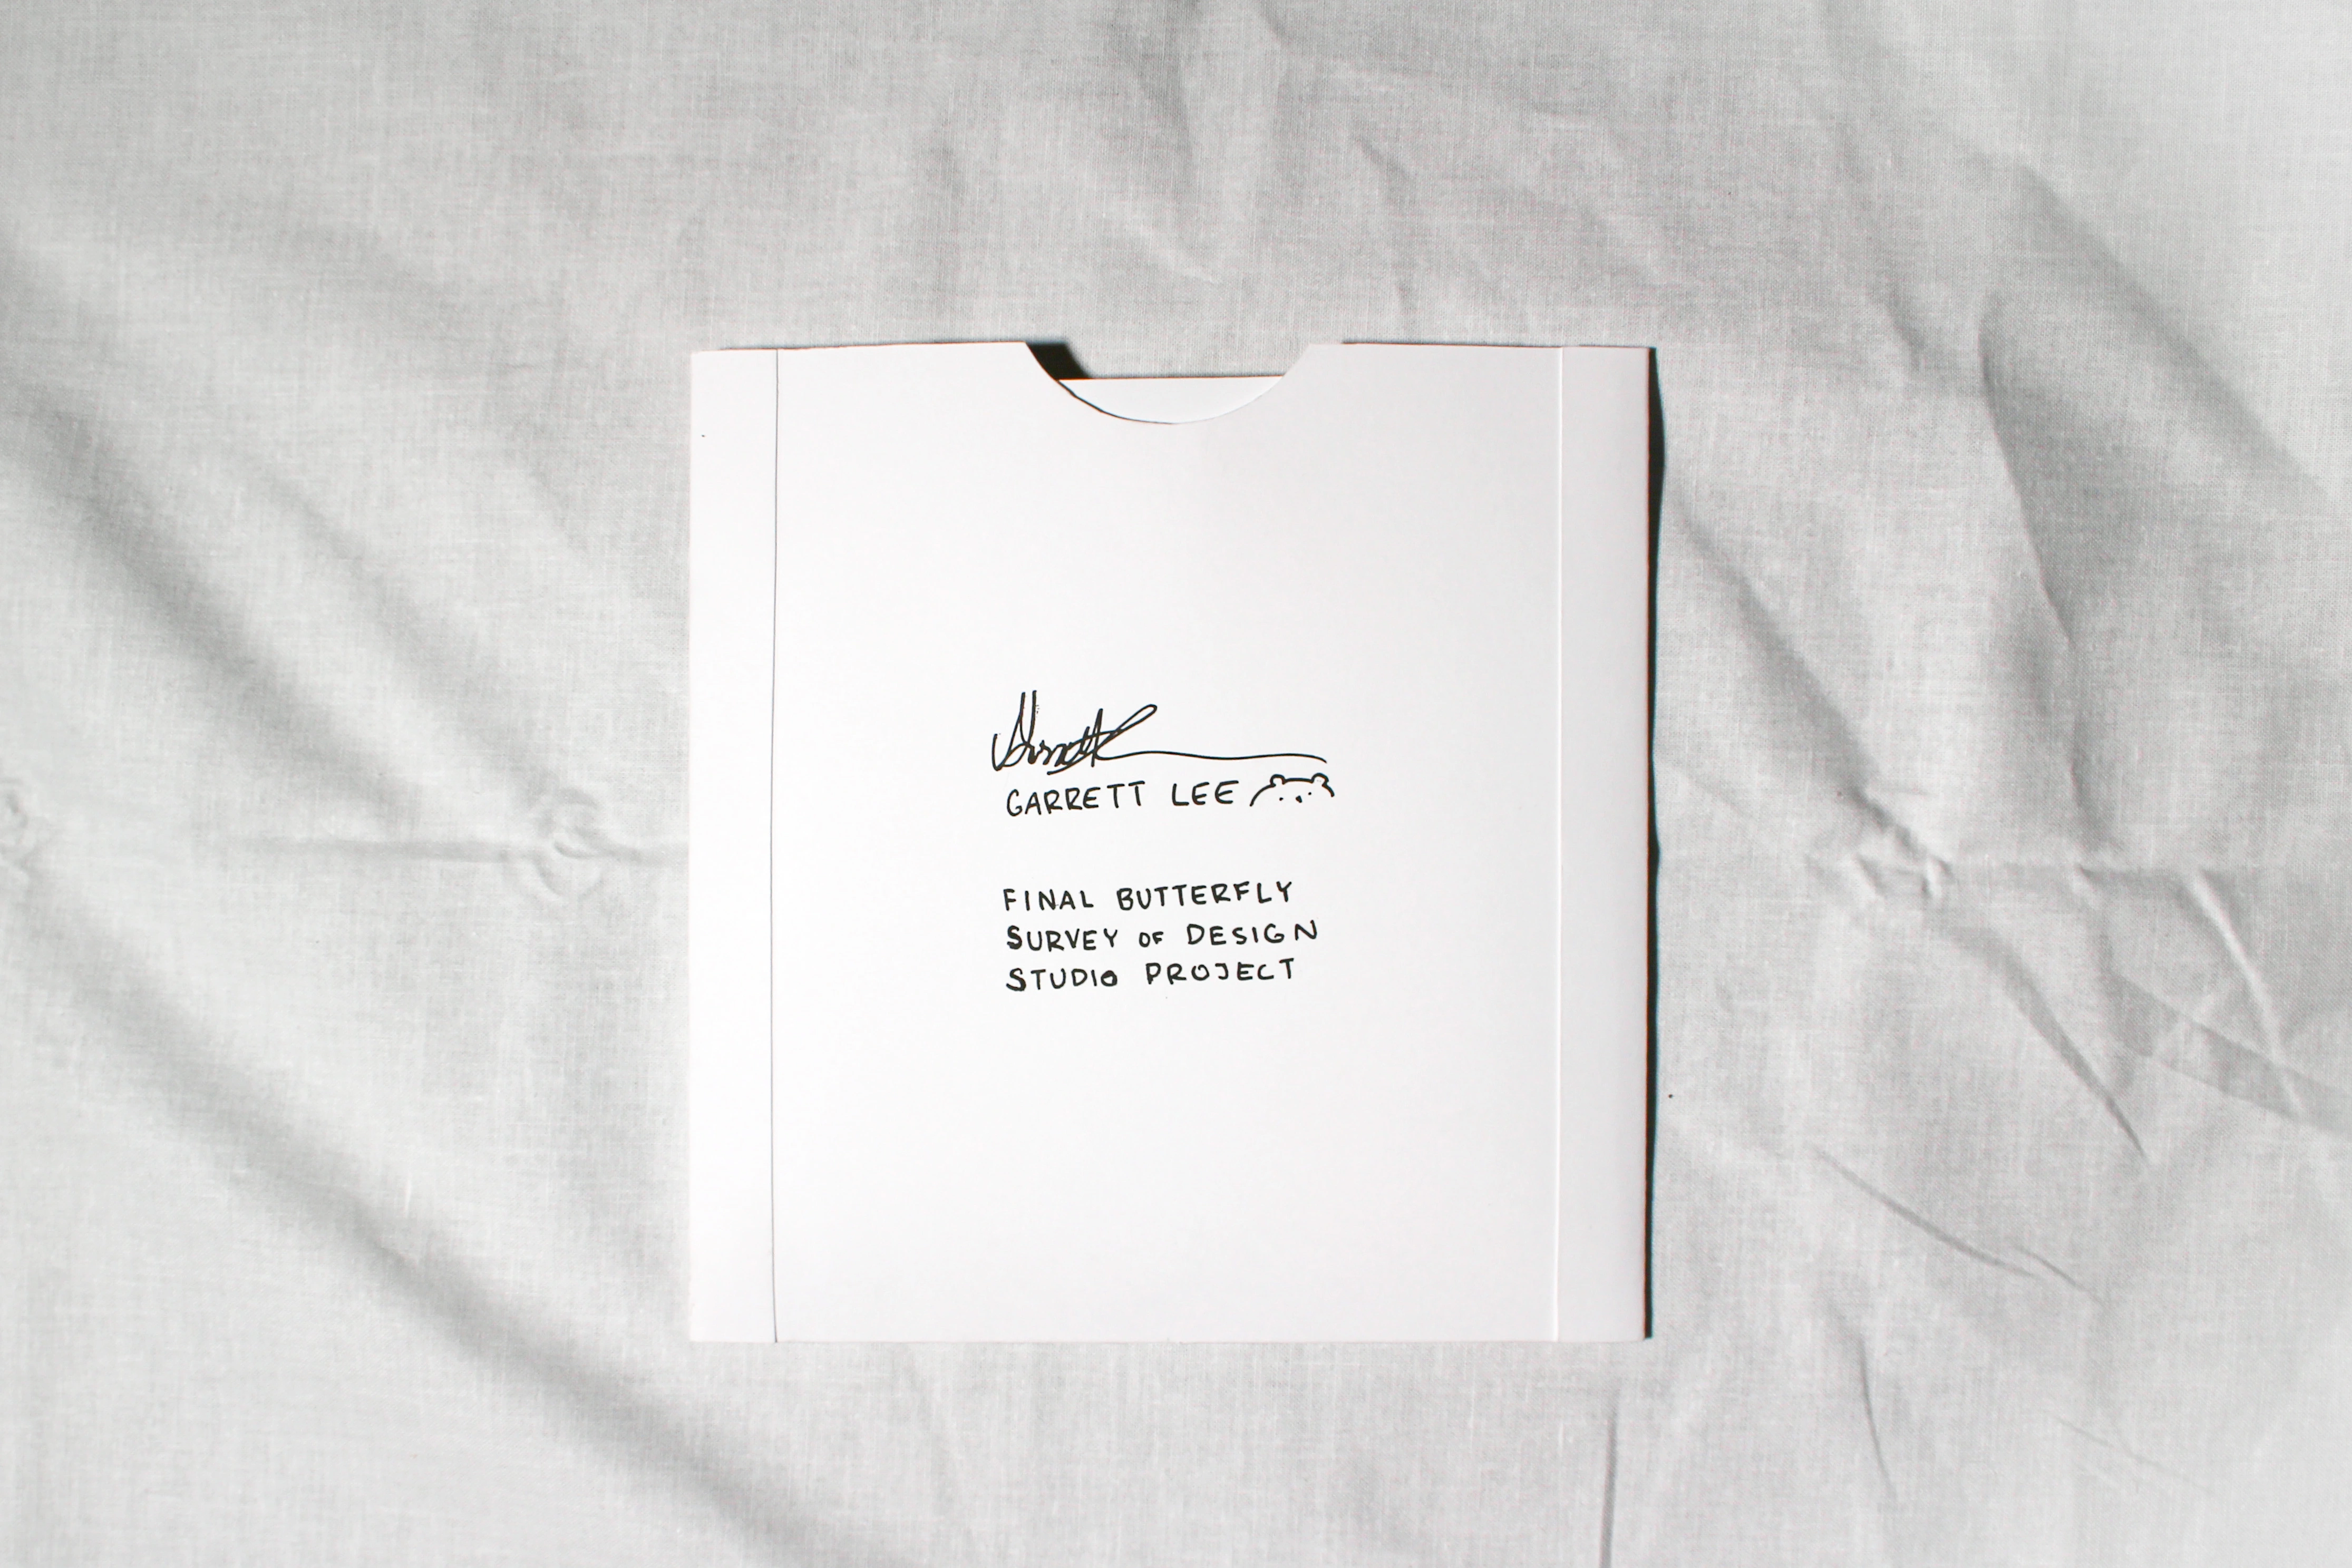 GARRETT LEE
FINAL BUTTERFLY
SURVEY OF DESIGN
STUDIO PROJECT